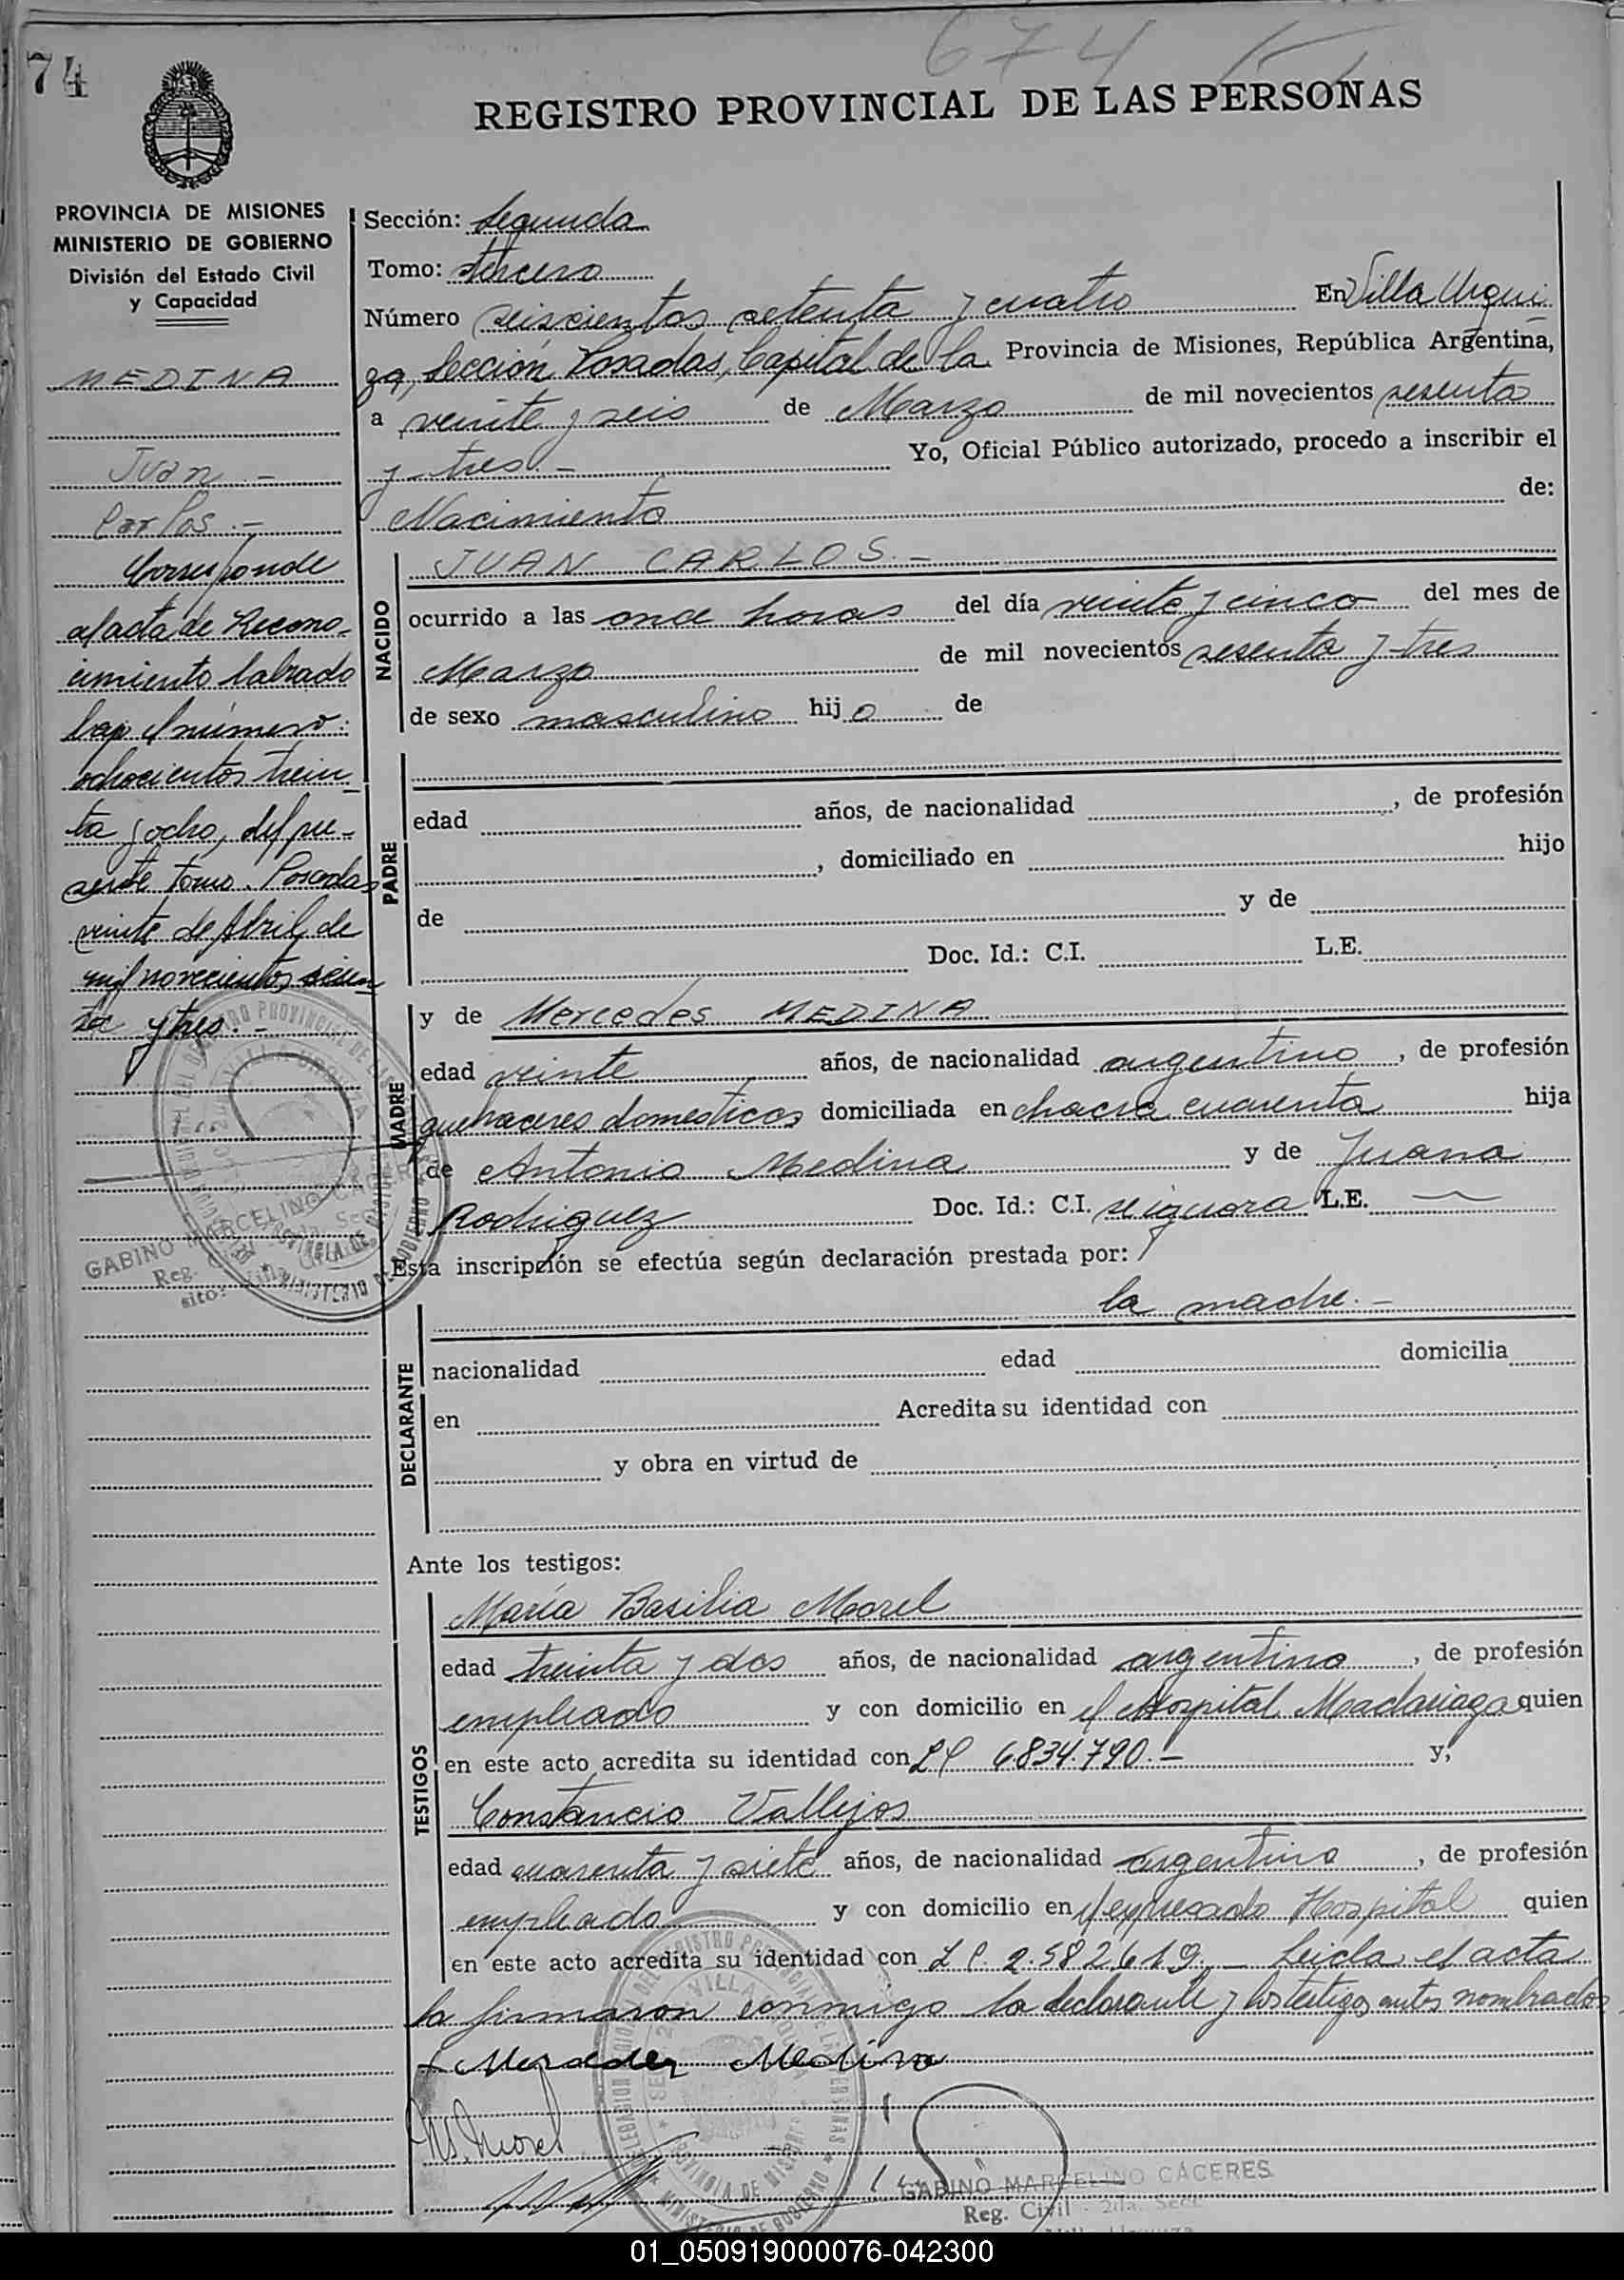 674
74
REGISTRO PROVINCIAL DE LAS PERSONAS
PROVINCIA DE MISIONES
MINISTERIO DE GOBIERNO
División del Estado Civil
y Capacidad
MEDINA
Juan.-
Carlos.-
Corresponde
al acta de Recono-
cimiento labrado
bajo el número:
ochocientos trein
ta y ocho, del pre-
sente tomo. Posadas
veinte de Abril de
mil novecientos sesen
ta y tres.-
GABINO MARCELINO CACERES
Sección: Segunda
Tomo: tercero
Número seiscientos setenta y cuatro En Villa Urqui
za, Sección Posadas, Capital de la Provincia de Misiones, República Argentina,
a veinte y seis de Marzo de mil novecientos sesenta
y tres.- Yo, Oficial Público autorizado, procedo a inscribir el
Nacimiento de:
NACIDO
JUAN CARLOS.-
ocurrido a las once horas del día veinte y cinco del mes de
Marzo de mil novecientos sesenta y tres
de sexo masculino hijo de
PADRE
edad años, de nacionalidad , de profesión
, domiciliado en hijo
de y de
Doc. Id.: C.I. L.E.
MADRE
y de Mercedes MEDINA
edad veinte años, de nacionalidad argentino, de profesión
quehaceres domesticos domiciliada en chacra cuarenta hija
de Antonio Medina y de Juana
Rodriguez Doc. Id.: C.I. se ignora L.E. —
Esta inscripción se efectúa según declaración prestada por:
la madre.-
DECLARANTE
nacionalidad edad domicilia
en Acredita su identidad con
y obra en virtud de
Ante los testigos:
TESTIGOS
María Basilia Morel
edad treinta y dos años, de nacionalidad argentino, de profesión
empleado y con domicilio en el Hospital Madariaga quien
en este acto acredita su identidad con LC 6.834.790.- y,
Constancio Vallejos
edad cuarenta y siete años, de nacionalidad argentino, de profesión
empleado y con domicilio en el expresado Hospital quien
en este acto acredita su identidad con L C. 2.582.619.- Leida el acta
la firmaron conmigo la declarante y los testigos antes nombrados
Mercedes Medina
Morel
GABINO MARCELINO CÁCERES
Reg. Civil - 2da. Secc
01_050919000076-042300